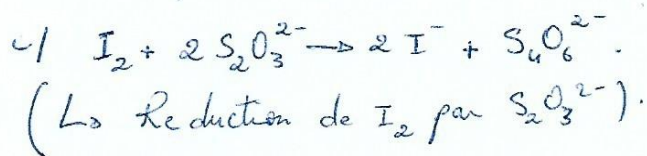 c/ I₂ + 2 S₂O₃²⁻ → 2 I⁻ + S₄O₆²⁻.
(↳ Reduction de I₂ par S₂O₃²⁻).